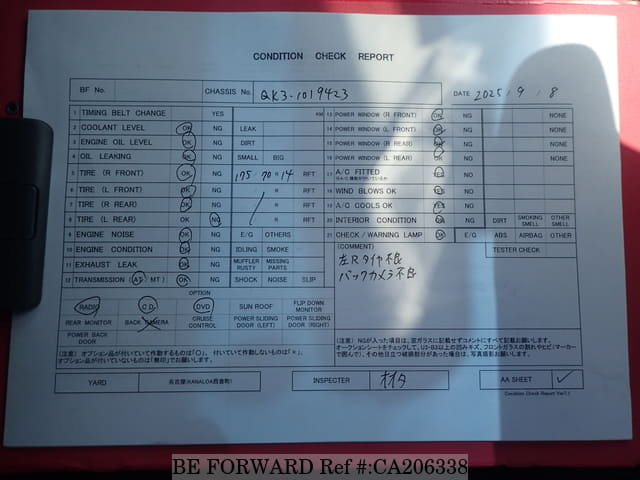 CONDITION CHECK REPORT
BF No. CHASSIS No. QK3-1019423 DATE 2025 / 9 / 8
1 TIMING BELT CHANGE YES KM
2 COOLANT LEVEL OK NG LEAK
3 ENGINE OIL LEVEL OK NG DIRT
4 OIL LEAKING OK NG SMALL BIG
5 TIRE (R FRONT) OK NG 175 / 70 R 14 RFT
6 TIRE (L FRONT) OK NG / R RFT
7 TIRE (R REAR) OK NG R RFT
8 TIRE (L REAR) OK NG R RFT
9 ENGINE NOISE OK NG E/G OTHERS
10 ENGINE CONDITION OK NG IDLING SMOKE
11 EXHAUST LEAK OK NG MUFFLER RUSTY MISSING PARTS
12 TRANSMISSION (AT/MT) OK NG SHOCK NOISE SLIP
13 POWER WINDOW (R FRONT) OK NG NONE
14 POWER WINDOW (L FRONT) OK NG NONE
15 POWER WINDOW (R REAR) OK NG NONE
16 POWER WINDOW (L REAR) OK NG NONE
17 A/C FITTED YES NG
18 WIND BLOWS OK YES NG
19 A/C COOLS OK YES NG
20 INTERIOR CONDITION OK NG DIRT SMOKING SMELL OTHER SMELL
21 CHECK/WARNING LAMP OK E/G ABS AIRBAG OTHER
(COMMENT) TESTER CHECK
左Rタイヤ不良
バックカメラ不良
OPTION
RADIO C.D. DVD SUN ROOF FLIP DOWN MONITOR
REAR MONITOR BACK CAMERA CRUISE CONTROL POWER SLIDING DOOR (LEFT) POWER SLIDING DOOR (RIGHT)
POWER BACK DOOR
(注意) オプション品が付いていて作動するものは「○」、付いていて作動しないものは「×」、
オプション品が付いていないものは「無印」でお願いします。
(注意) NGが入った項目は、空ガラスに記載せずコメントにすべて記載お願いします。
オークションシートをチェックして、U3・B3以上の凹みキズ、フロントガラスの割れやヒビ(マーカーで囲んで)、その他目立つ破損部分があった場合は、写真撮影お願いします。
YARD 名古屋(KANALOA西倉町) INSPECTER オイタ AA SHEET ✓
Condition Check Report Ver7.1
BE FORWARD Ref #:CA206338